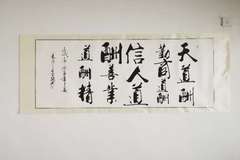 天道酬
勤商道酬
信人道
酬善業
道酬精